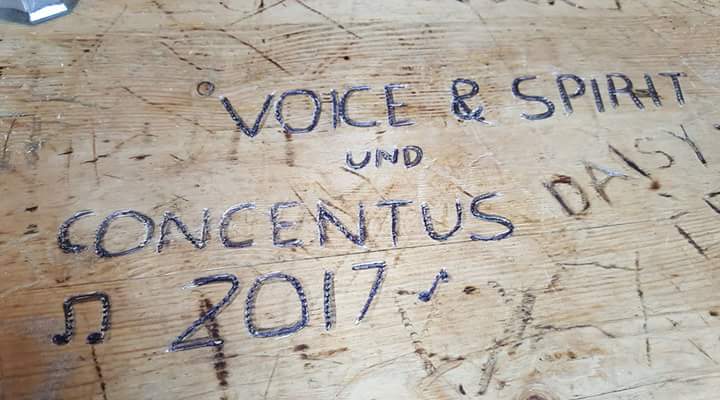 VOICE & SPIRIT
UND
CONCENTUS
DAISY
♫ 2017 ♪